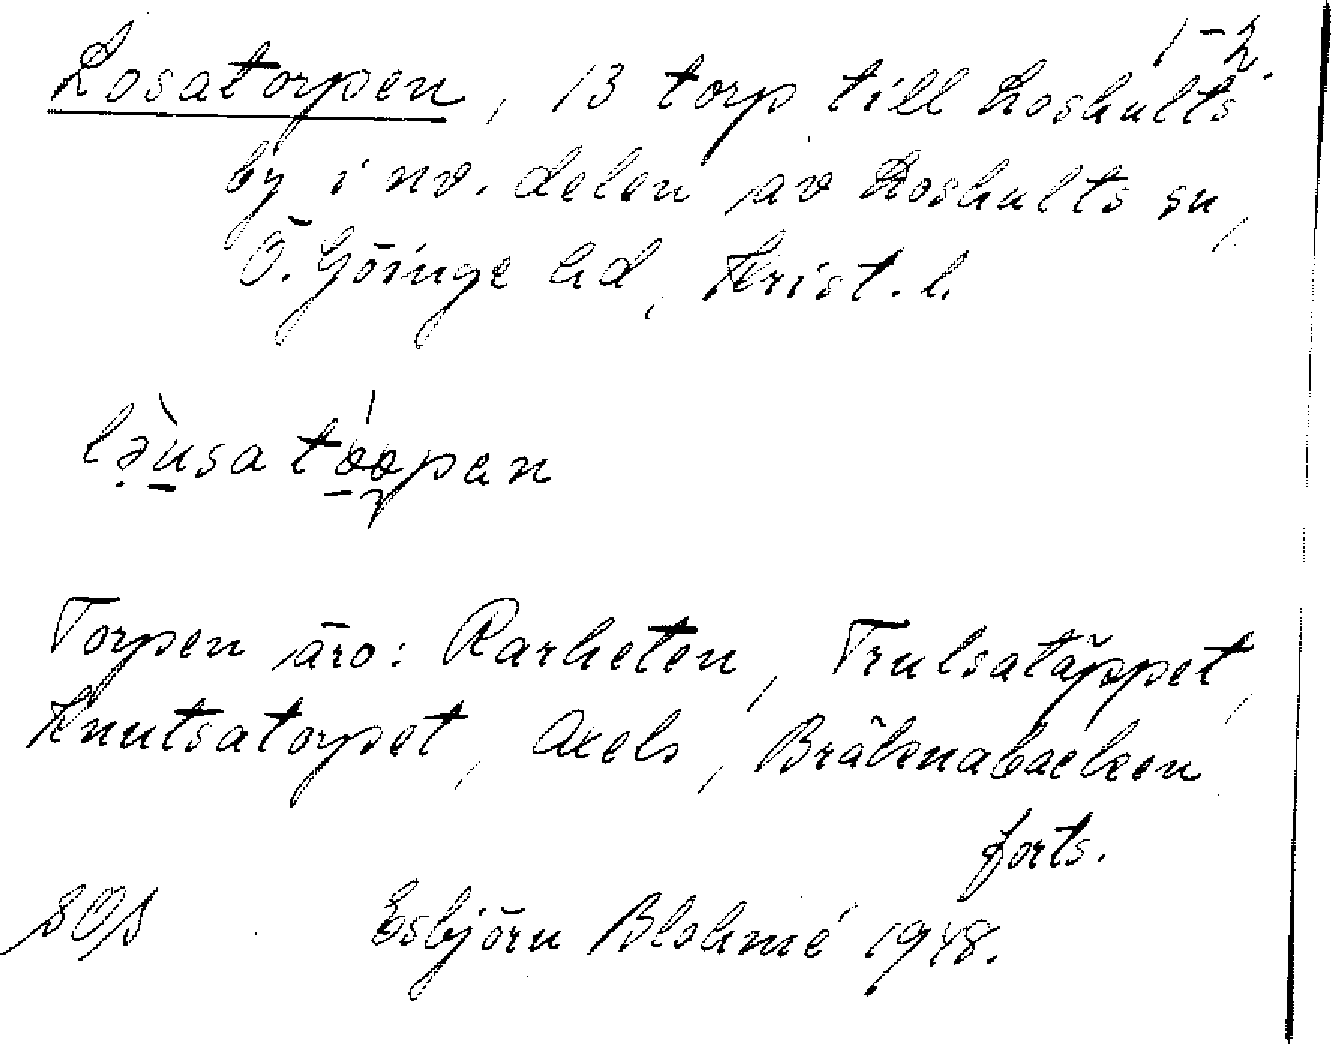 1-2.
Losatorpen, 13 torp till Loshults
by i nv. delen av Loshults sn,
Ö. Göinge hd, Krist. l.
lə̀usatóopan
Torpen äro: Rarheten, Trulsatäppet,
Knutsatorpet, Axels, Bräknabacken
forts.
SOA Esbjörn Blohmé 1948.